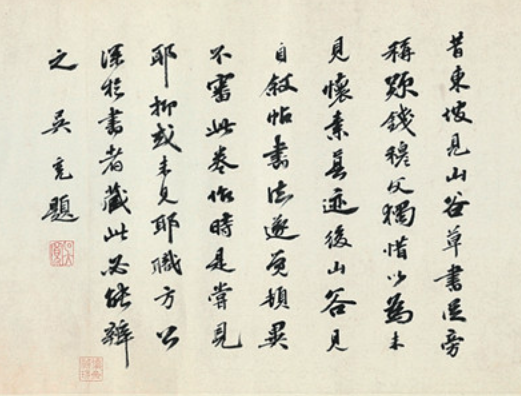 昔東坡見山谷草書從旁
稱歎錢穆父獨惜以為未
見懷素真迹後山谷見
自敘帖書法遂覺頓異
不審此卷作時是嘗見
耶抑或未見耶職方公
深於書者藏此必能辨
之 吳寬題